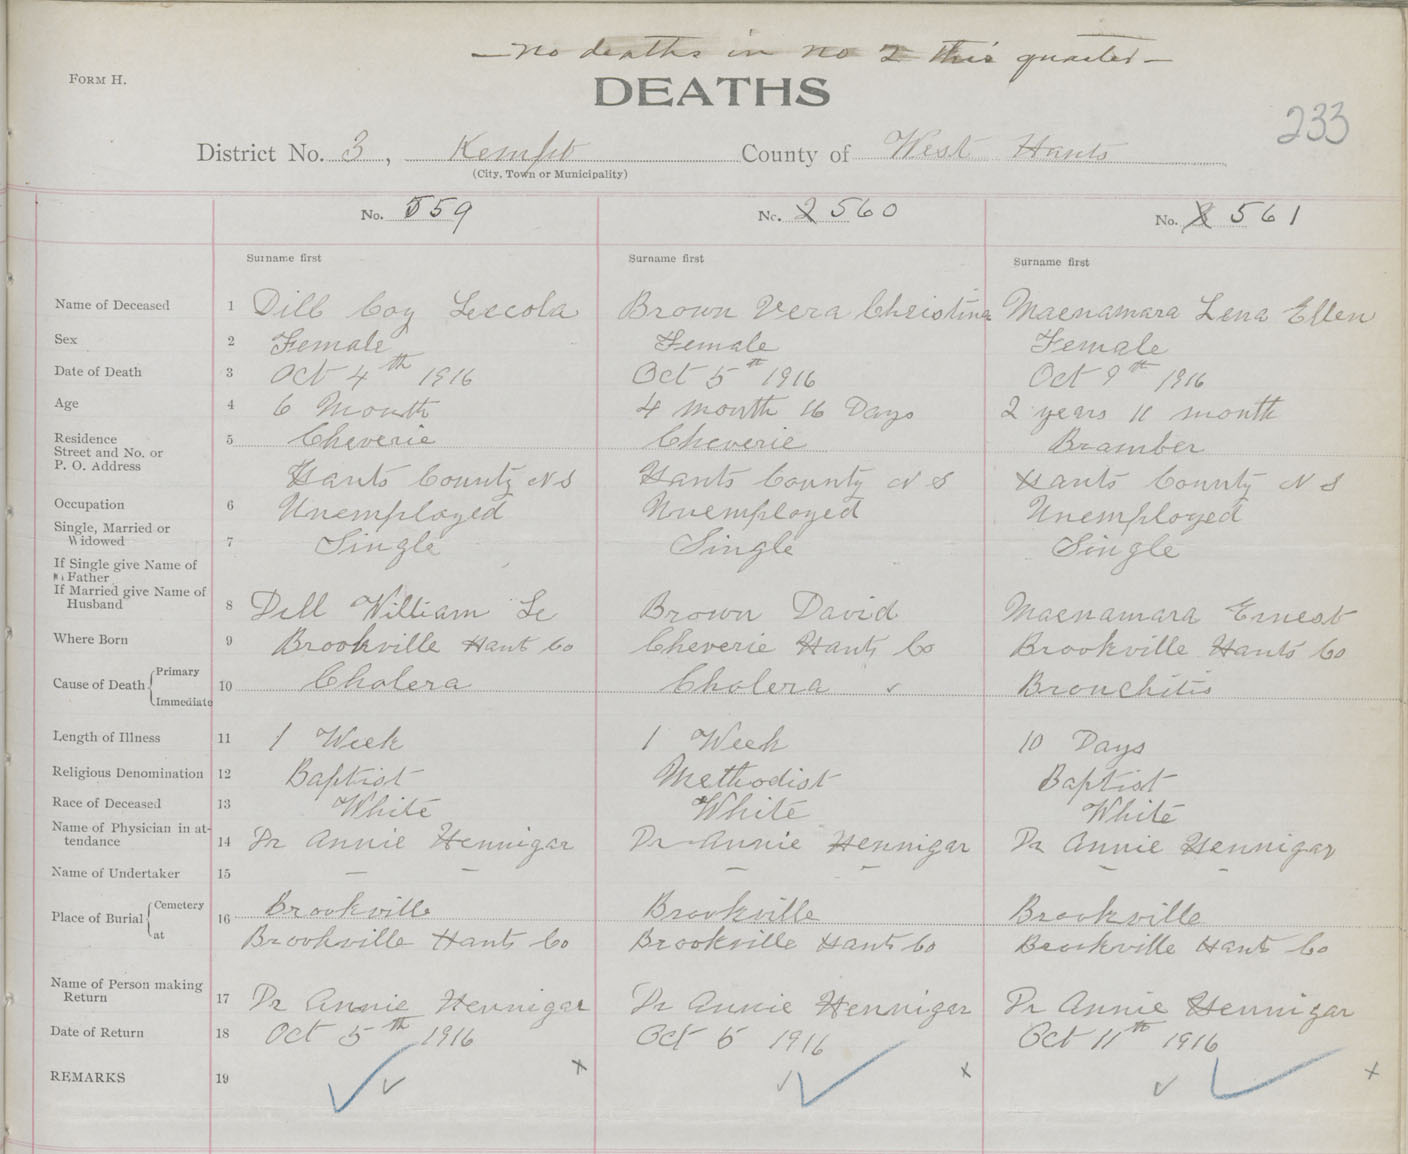 — no deaths in no 2 this quarter —
FORM H.
DEATHS
233
District No. 3, Kempt County of West Hants
(City, Town or Municipality)
No. 559 No. 2 560 No. 3 561
Surname first Surname first Surname first
Name of Deceased 1 Dill Coy Leecola Brown Vera Christina Macnamara Lena Ellen
Sex 2 Female Female Female
Date of Death 3 Oct 4th 1916 Oct 5th 1916 Oct 9th 1916
Age 4 6 Month 4 month 16 Days 2 years 11 month
Residence 5 Cheverie Cheverie Bramber
Street and No. or
P. O. Address Hants County N S Hants County N S Hants County N S
Occupation 6 Unemployed Unemployed Unemployed
Single, Married or
Widowed 7 Single Single Single
If Single give Name of
Father
If Married give Name of
Husband 8 Dill William Le Brown David Macnamara Ernest
Where Born 9 Brookville Hant Co Cheverie Hants Co Brookville Hants Co
Cause of Death { Primary 10 Cholera Cholera Bronchitis
Immediate
Length of Illness 11 1 Week 1 Week 10 Days
Religious Denomination 12 Baptist Methodist Baptist
Race of Deceased 13 White White White
Name of Physician in at-
tendance 14 Dr Annie Hennigar Dr Annie Hennigar Dr Annie Hennigar
Name of Undertaker 15 — — — — — —
Place of Burial { Cemetery 16 Brookville Brookville Brookville
at Brookville Hants Co Brookville Hants Co Brookville Hants Co
Name of Person making
Return 17 Dr Annie Hennigar Dr Annie Hennigar Dr Annie Hennigar
Date of Return 18 Oct 5th 1916 Oct 6 1916 Oct 11th 1916
REMARKS 19 x x x